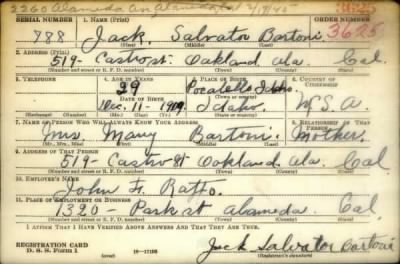 2260 Alameda Av. Alameda Cal 2/9/42
SERIAL NUMBER 1. NAME (Print) ORDER NUMBER
888 Jack Salvator Bartoni 3625
(First) (Middle) (Last)
2. ADDRESS (Print)
519- Castro st. Oakland Ala. Cal.
(Number and street or R. F. D. number) (Town) (County) (State)
3. TELEPHONE 4. AGE IN YEARS 5. PLACE OF BIRTH 6. COUNTRY OF CITIZENSHIP
29 Pocatello Idaho.
DATE OF BIRTH
Dec. 11- 1909. Idaho. U.S.A.
(Exchange) (Number) (Mo.) (Day) (Yr.) (State or country)
7. NAME OF PERSON WHO WILL ALWAYS KNOW YOUR ADDRESS 8. RELATIONSHIP OF THAT PERSON
Mrs. Mary Bartoni. Mother.
(Mr., Mrs., Miss) (First) (Middle) (Last)
9. ADDRESS OF THAT PERSON
519- Castro st Oakland, Ala. Cal
(Number and street or R. F. D. number) (Town) (County) (State)
10. EMPLOYER'S NAME
John F. Ratto.
11. PLACE OF EMPLOYMENT OR BUSINESS
1320- Park st Alameda. Cal.
(Number and street or R. F. D. number) (Town) (County) (State)
I AFFIRM THAT I HAVE VERIFIED ABOVE ANSWERS AND THAT THEY ARE TRUE.
REGISTRATION CARD
D. S. S. Form 1 (over) Jack Salvator Bartoni
(Registrant's signature)